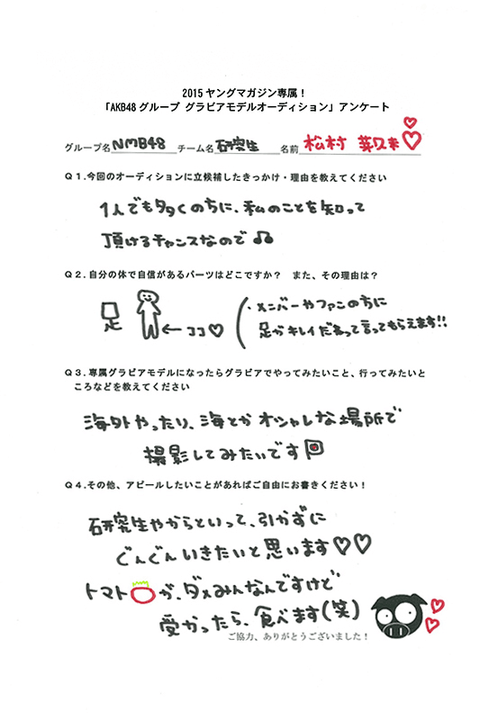 2015ヤングマガジン専属!
「AKB48グループ グラビアモデルオーディション」アンケート
グループ名 NMB48 チーム名 研究生 名前 松村 英又来
Q1.今回のオーディションに立候補したきっかけ・理由を教えてください
1人でも多くのちに、私のことを知って
頂けるチャンスなので♫
Q2.自分の体で自信があるパーツはどこですか? また、その理由は?
足 ←ココ♡
・メンバーやファンのちに
足がキレイだねって言ってもらえます!!
Q3.専属グラビアモデルになったらグラビアでやってみたいこと、行ってみたいと
ころなどを教えてください
海外やったり、海とかオシャレな場所で
撮影してみたいです
Q4.その他、アピールしたいことがあればご自由にお書きください!
研究生やからといって、引かずに
ぐんぐんいきたいと思います♡♡
トマトが、ダメみんなんですけど
受かったら、食べます(笑)
ご協力、ありがとうございました!